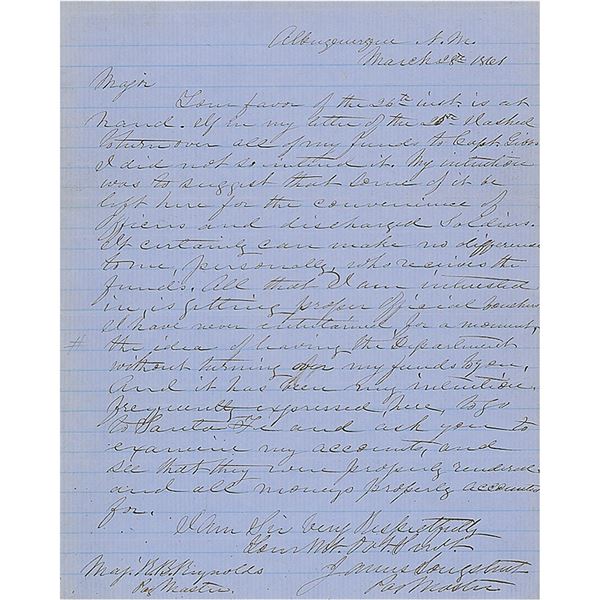 Albuquerque N. M.
March 28th 1861
Major
Your favor of the 26th inst. is at
hand. If in my letter of the 25th I asked
to turn over all of my funds to Capt. Gibbs
I did not so intend it. My intention
was to suggest that some of it be
left here for the convenience of
Officers and discharged Soldiers.
It certainly can make no difference
to me, personally, who receives the
funds. All that I am interested
in, is getting proper Official vouchers
I have never entertained for a moment,
# the idea of leaving the Department
without turning over my funds to you.
And it has been my intention,
frequently expressed, here, to go
to Santa Fe and ask you to
examine my accounts, and
see that they were properly rendered
and all moneys properly accounted
for.
I Am Sir Very Respectfully
Your Obt. Servt.
James Longstreet
Maj. B. Reynolds
Pay Master
Pay Master